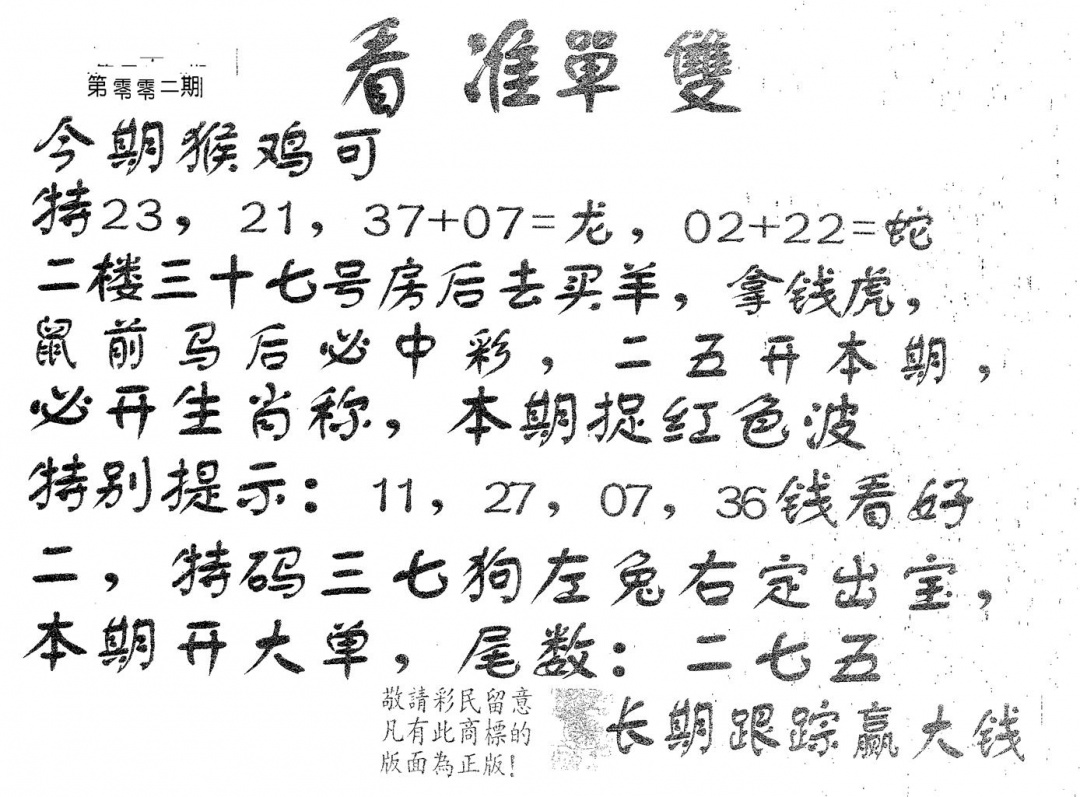 看准單雙
第零零二期
今期猴鸡可
特23，21，37+07=龙，02+22=蛇
二楼三十七号房后去买羊，拿钱虎，
鼠前马后必中彩，二五开本期，
必开生肖称，本期捉红色波
特别提示：11，27，07，36钱看好
二，特码三七狗左兔右定出宝，
本期开大单，尾数：二七五
敬請彩民留意
凡有此商標的
版面為正版！
长期跟踪赢大钱